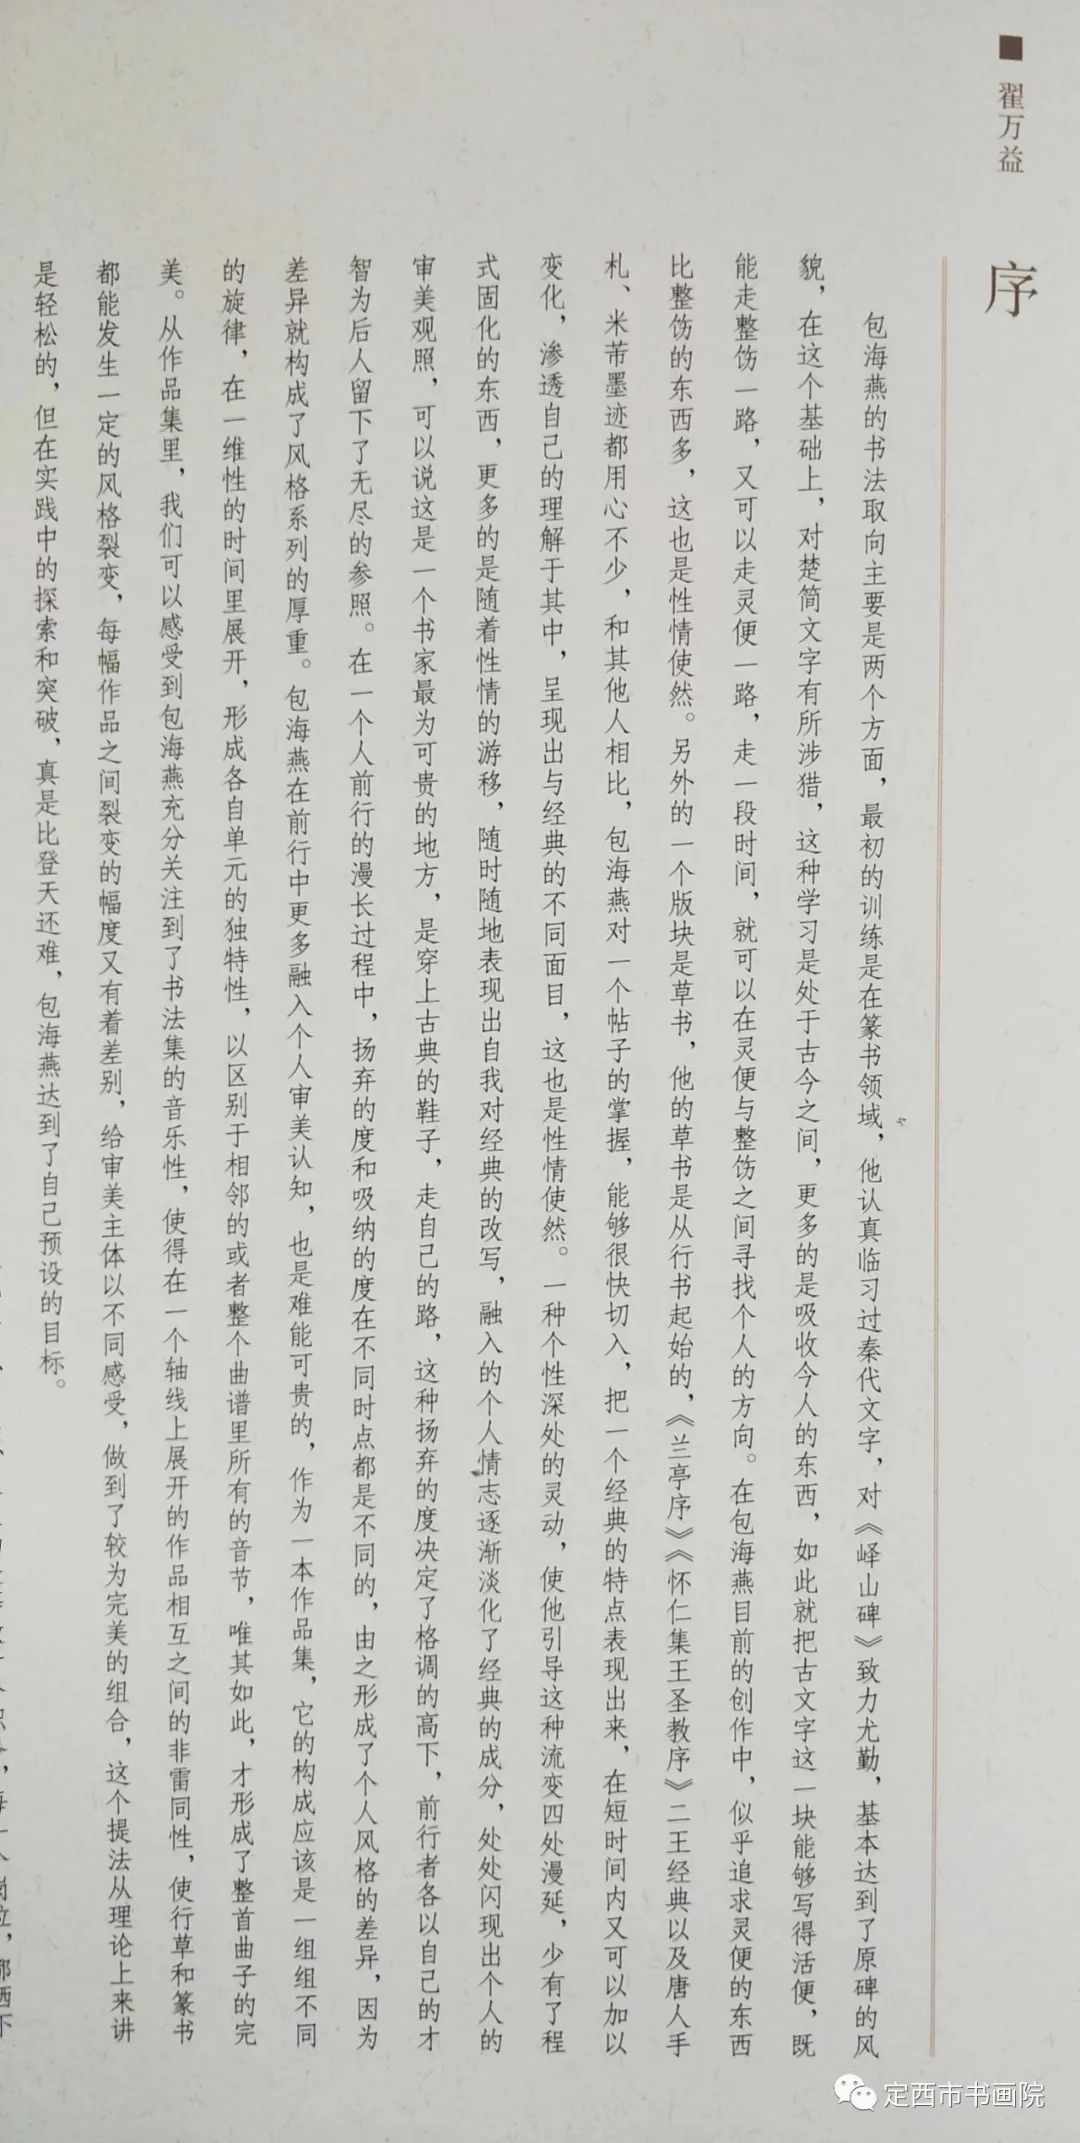 ■ 翟万益
序
包海燕的书法取向主要是两个方面，最初的训练是在篆书领域，他认真临习过秦代文字，对《峄山碑》致力尤勤，基本达到了原碑的风
貌，在这个基础上，对楚简文字有所涉猎，这种学习是处于古今之间，更多的是吸收今人的东西，如此就把古文字这一块能够写得活便，既
能走整饬一路，又可以走灵便一路，走一段时间，就可以在灵便与整饬之间寻找个人的方向。在包海燕目前的创作中，似乎追求灵便的东西
比整饬的东西多，这也是性情使然。另外的一个版块是草书，他的草书是从行书起始的，《兰亭序》《怀仁集王圣教序》二王经典以及唐人手
札、米芾墨迹都用心不少，和其他人相比，包海燕对一个帖子的掌握，能够很快切入，把一个经典的特点表现出来，在短时间内又可以加以
变化，渗透自己的理解于其中，呈现出与经典的不同面目，这也是性情使然。一种个性深处的灵动，使他引导这种流变四处漫延，少有了程
式固化的东西，更多的是随着性情的游移，随时随地表现出自我对经典的改写，融入的个人情志逐渐淡化了经典的成分，处处闪现出个人的
审美观照，可以说这是一个书家最为可贵的地方，是穿上古典的鞋子，走自己的路，这种扬弃的度决定了格调的高下，前行者各以自己的才
智为后人留下了无尽的参照。在一个人前行的漫长过程中，扬弃的度和吸纳的度在不同时点都是不同的，由之形成了个人风格的差异，因为
差异就构成了风格系列的厚重。包海燕在前行中更多融入个人审美认知，也是难能可贵的，作为一本作品集，它的构成应该是一组组不同
的旋律，在一维性的时间里展开，形成各自单元的独特性，以区别于相邻的或者整个曲谱里所有的音节，唯其如此，才形成了整首曲子的完
美。从作品集里，我们可以感受到包海燕充分关注到了书法集的音乐性，使得在一个轴线上展开的作品相互之间的非雷同性，使行草和篆书
都能发生一定的风格裂变，每幅作品之间裂变的幅度又有着差别，给审美主体以不同感受，做到了较为完美的组合，这个提法从理论上来讲
是轻松的，但在实践中的探索和突破，真是比登天还难，包海燕达到了自己预设的目标。
定西市书画院